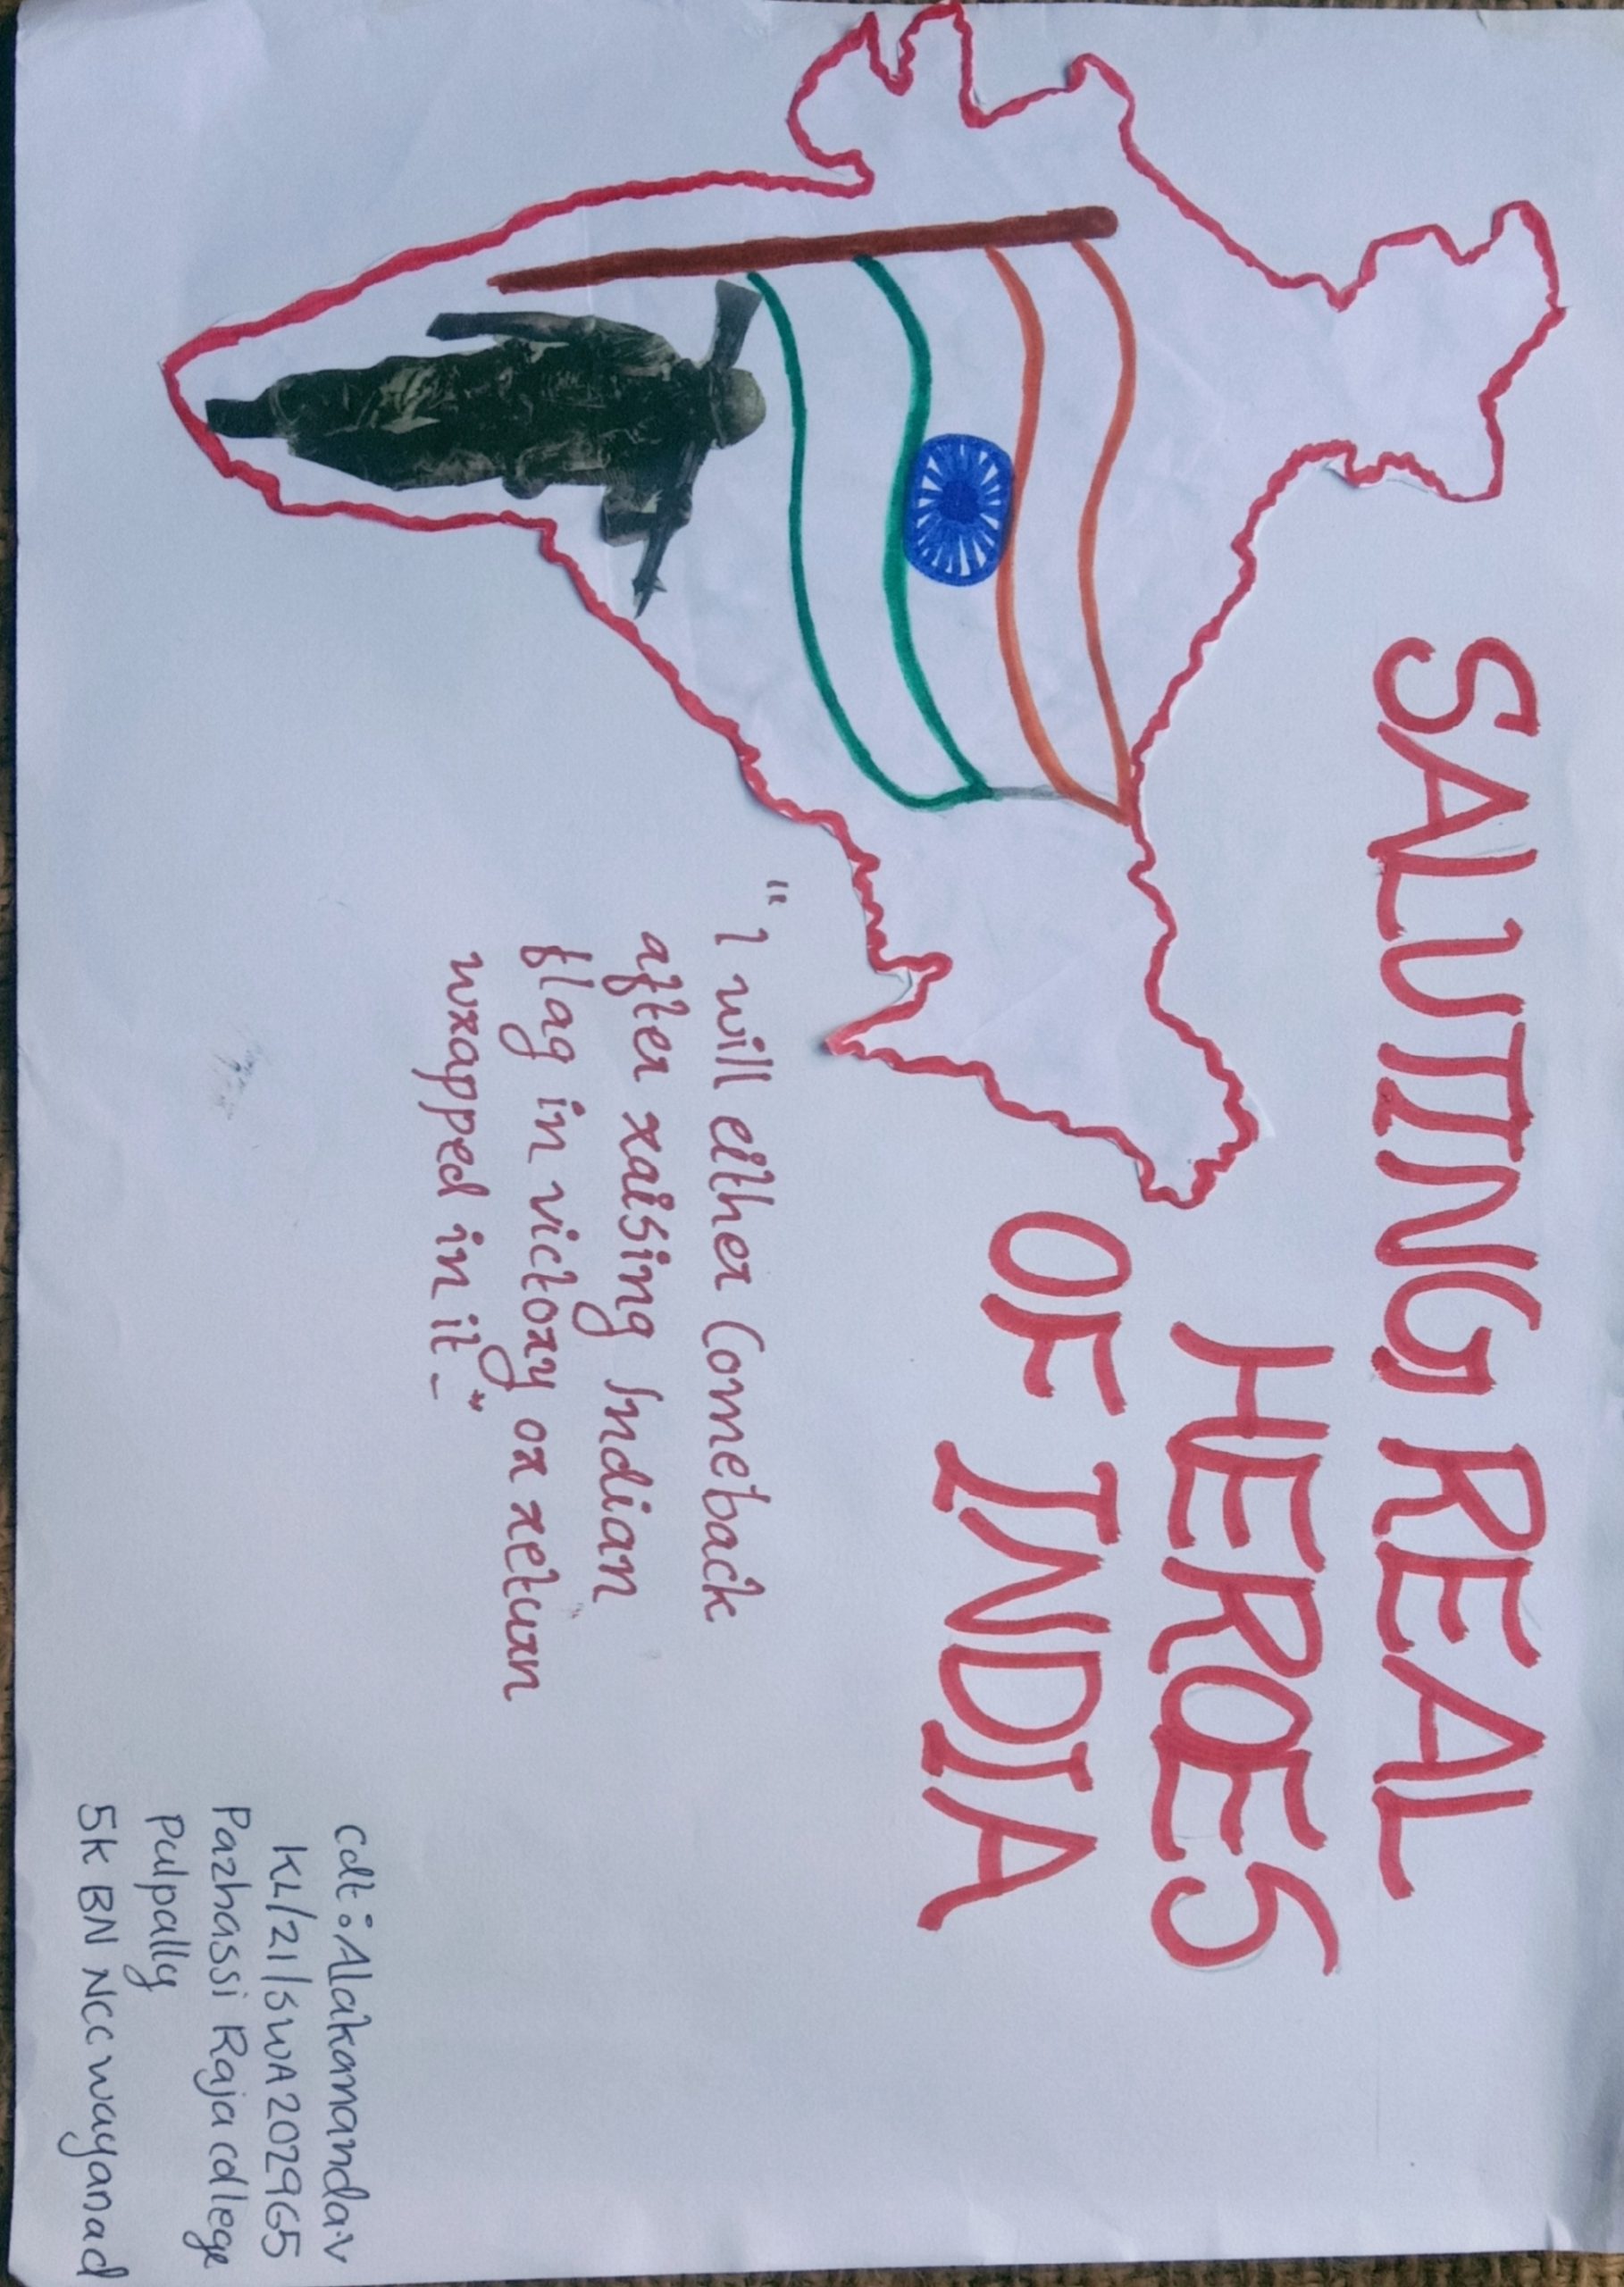 SALUTING REAL
HEROES
OF INDIA
"I will either Come back
after raising Indian
flag in victory or return
wrapped in it_"
Cdt: Alakananda.v
KL/21/SWA202965
Pazhassi Raja college
Pulpally
5K BN NCC wayanad